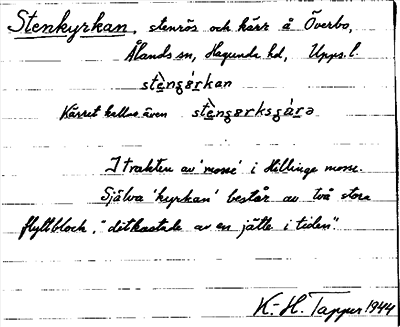 Stenkyrkan, stenrös och kärr å Överbo,
Ålands sn, Hagunda hd, Upps. l.
stèngɵrkan
Kärret kallas även stèngɵrksgárə
I trakten av 'mosse' i Hällinge mosse.
Själva 'kyrkan' består av två stora
flyttblock, "ditkastade av en jätte i tiden".
K.-H. Tapper 1944